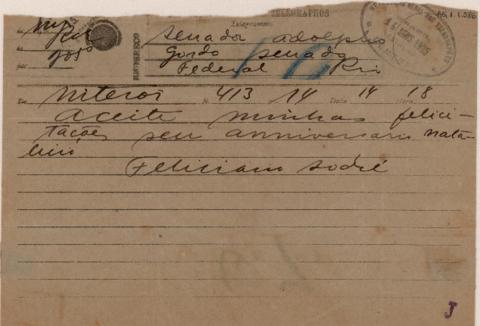 TELEGRAPHOS
Telegramma
Senador Adolpho
Gordo Senado
Federal Rio
De Niteroi N. 413 14 Data 14 Hora 18
Aceite minhas felici-
tações seu anniversario nata-
licio
Feliciano Sodré
J